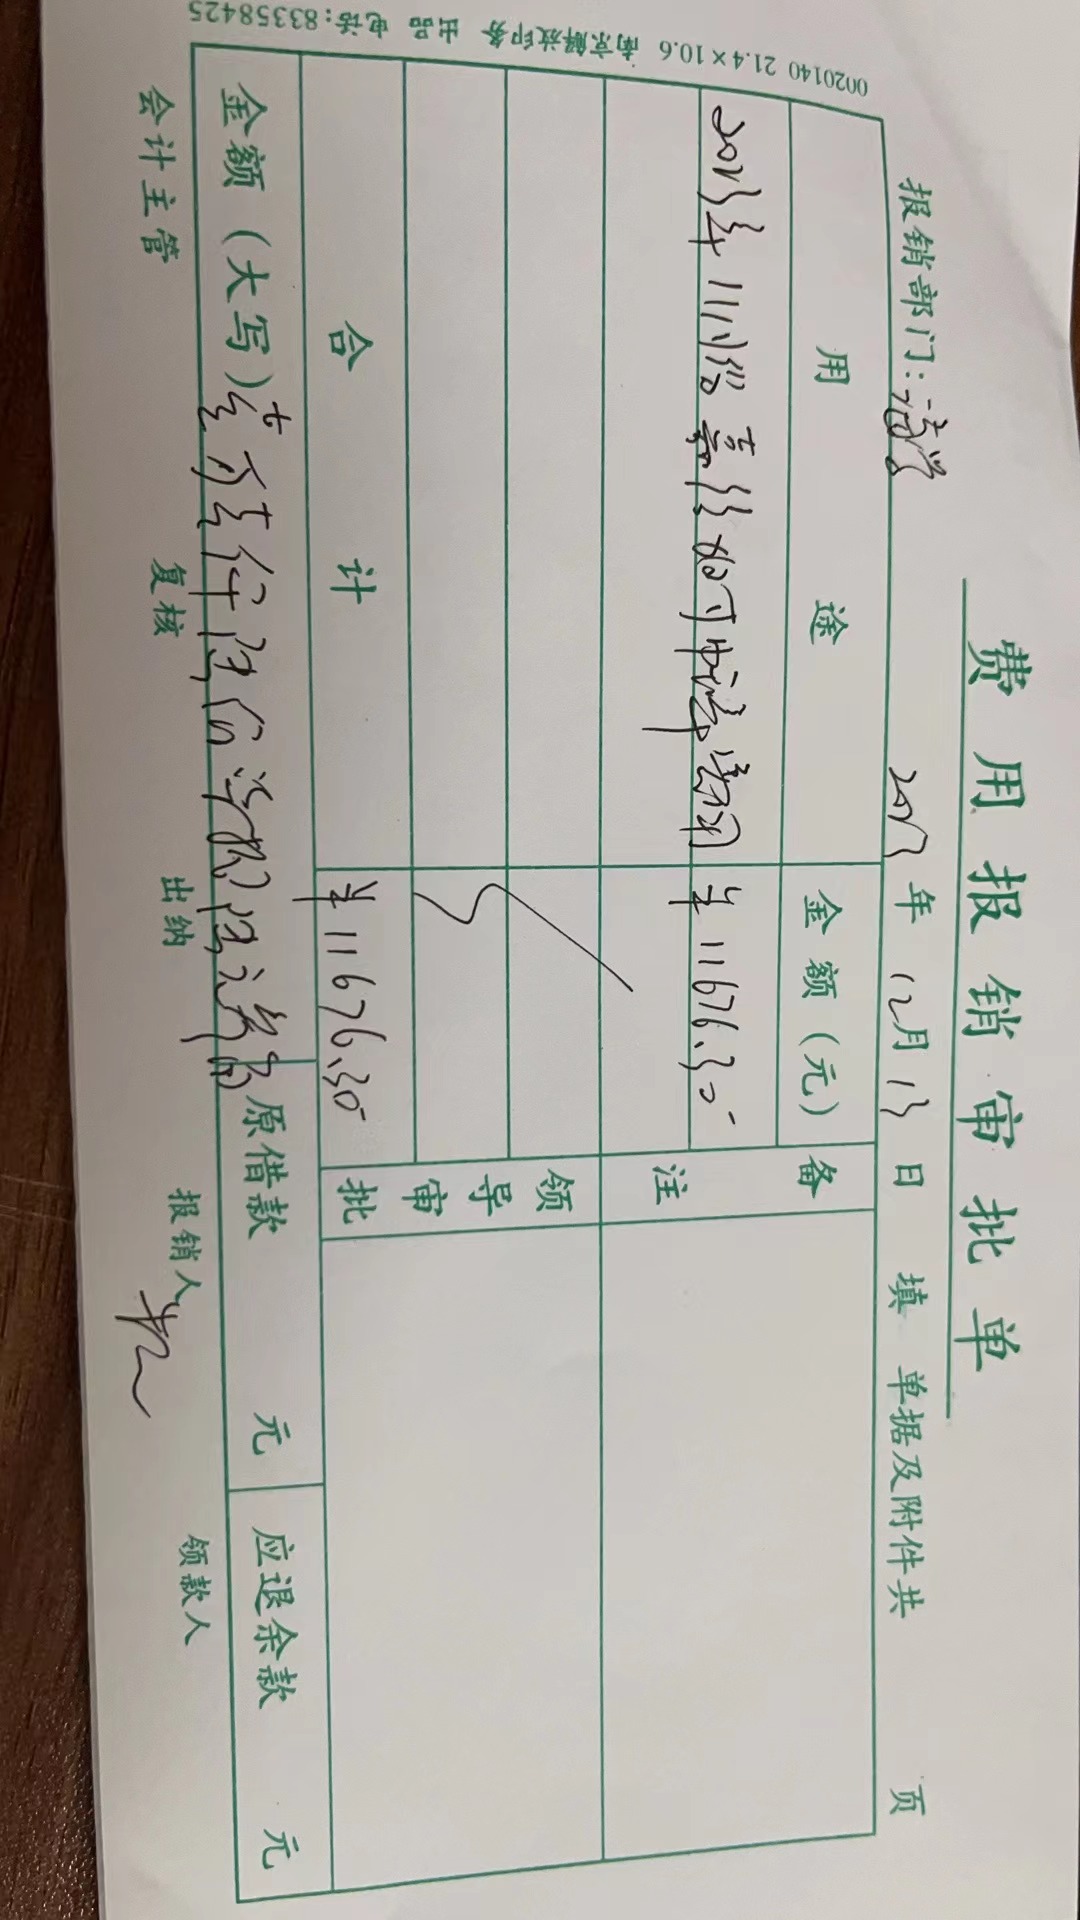 费用报销审批单
报销部门: 年 12月 13 日 填 单据及附件共 页
用 途 金额(元) 备注
¥11676.30
领导审批
合 计 ¥11676.30
金额(大写)壹万壹仟陆佰柒拾陆元叁角 原借款 元 应退余款 元
会计主管 复核 出纳 报销人 领款人
0020140 21.4×10.6 南京解放印务 出品 电话:83358425